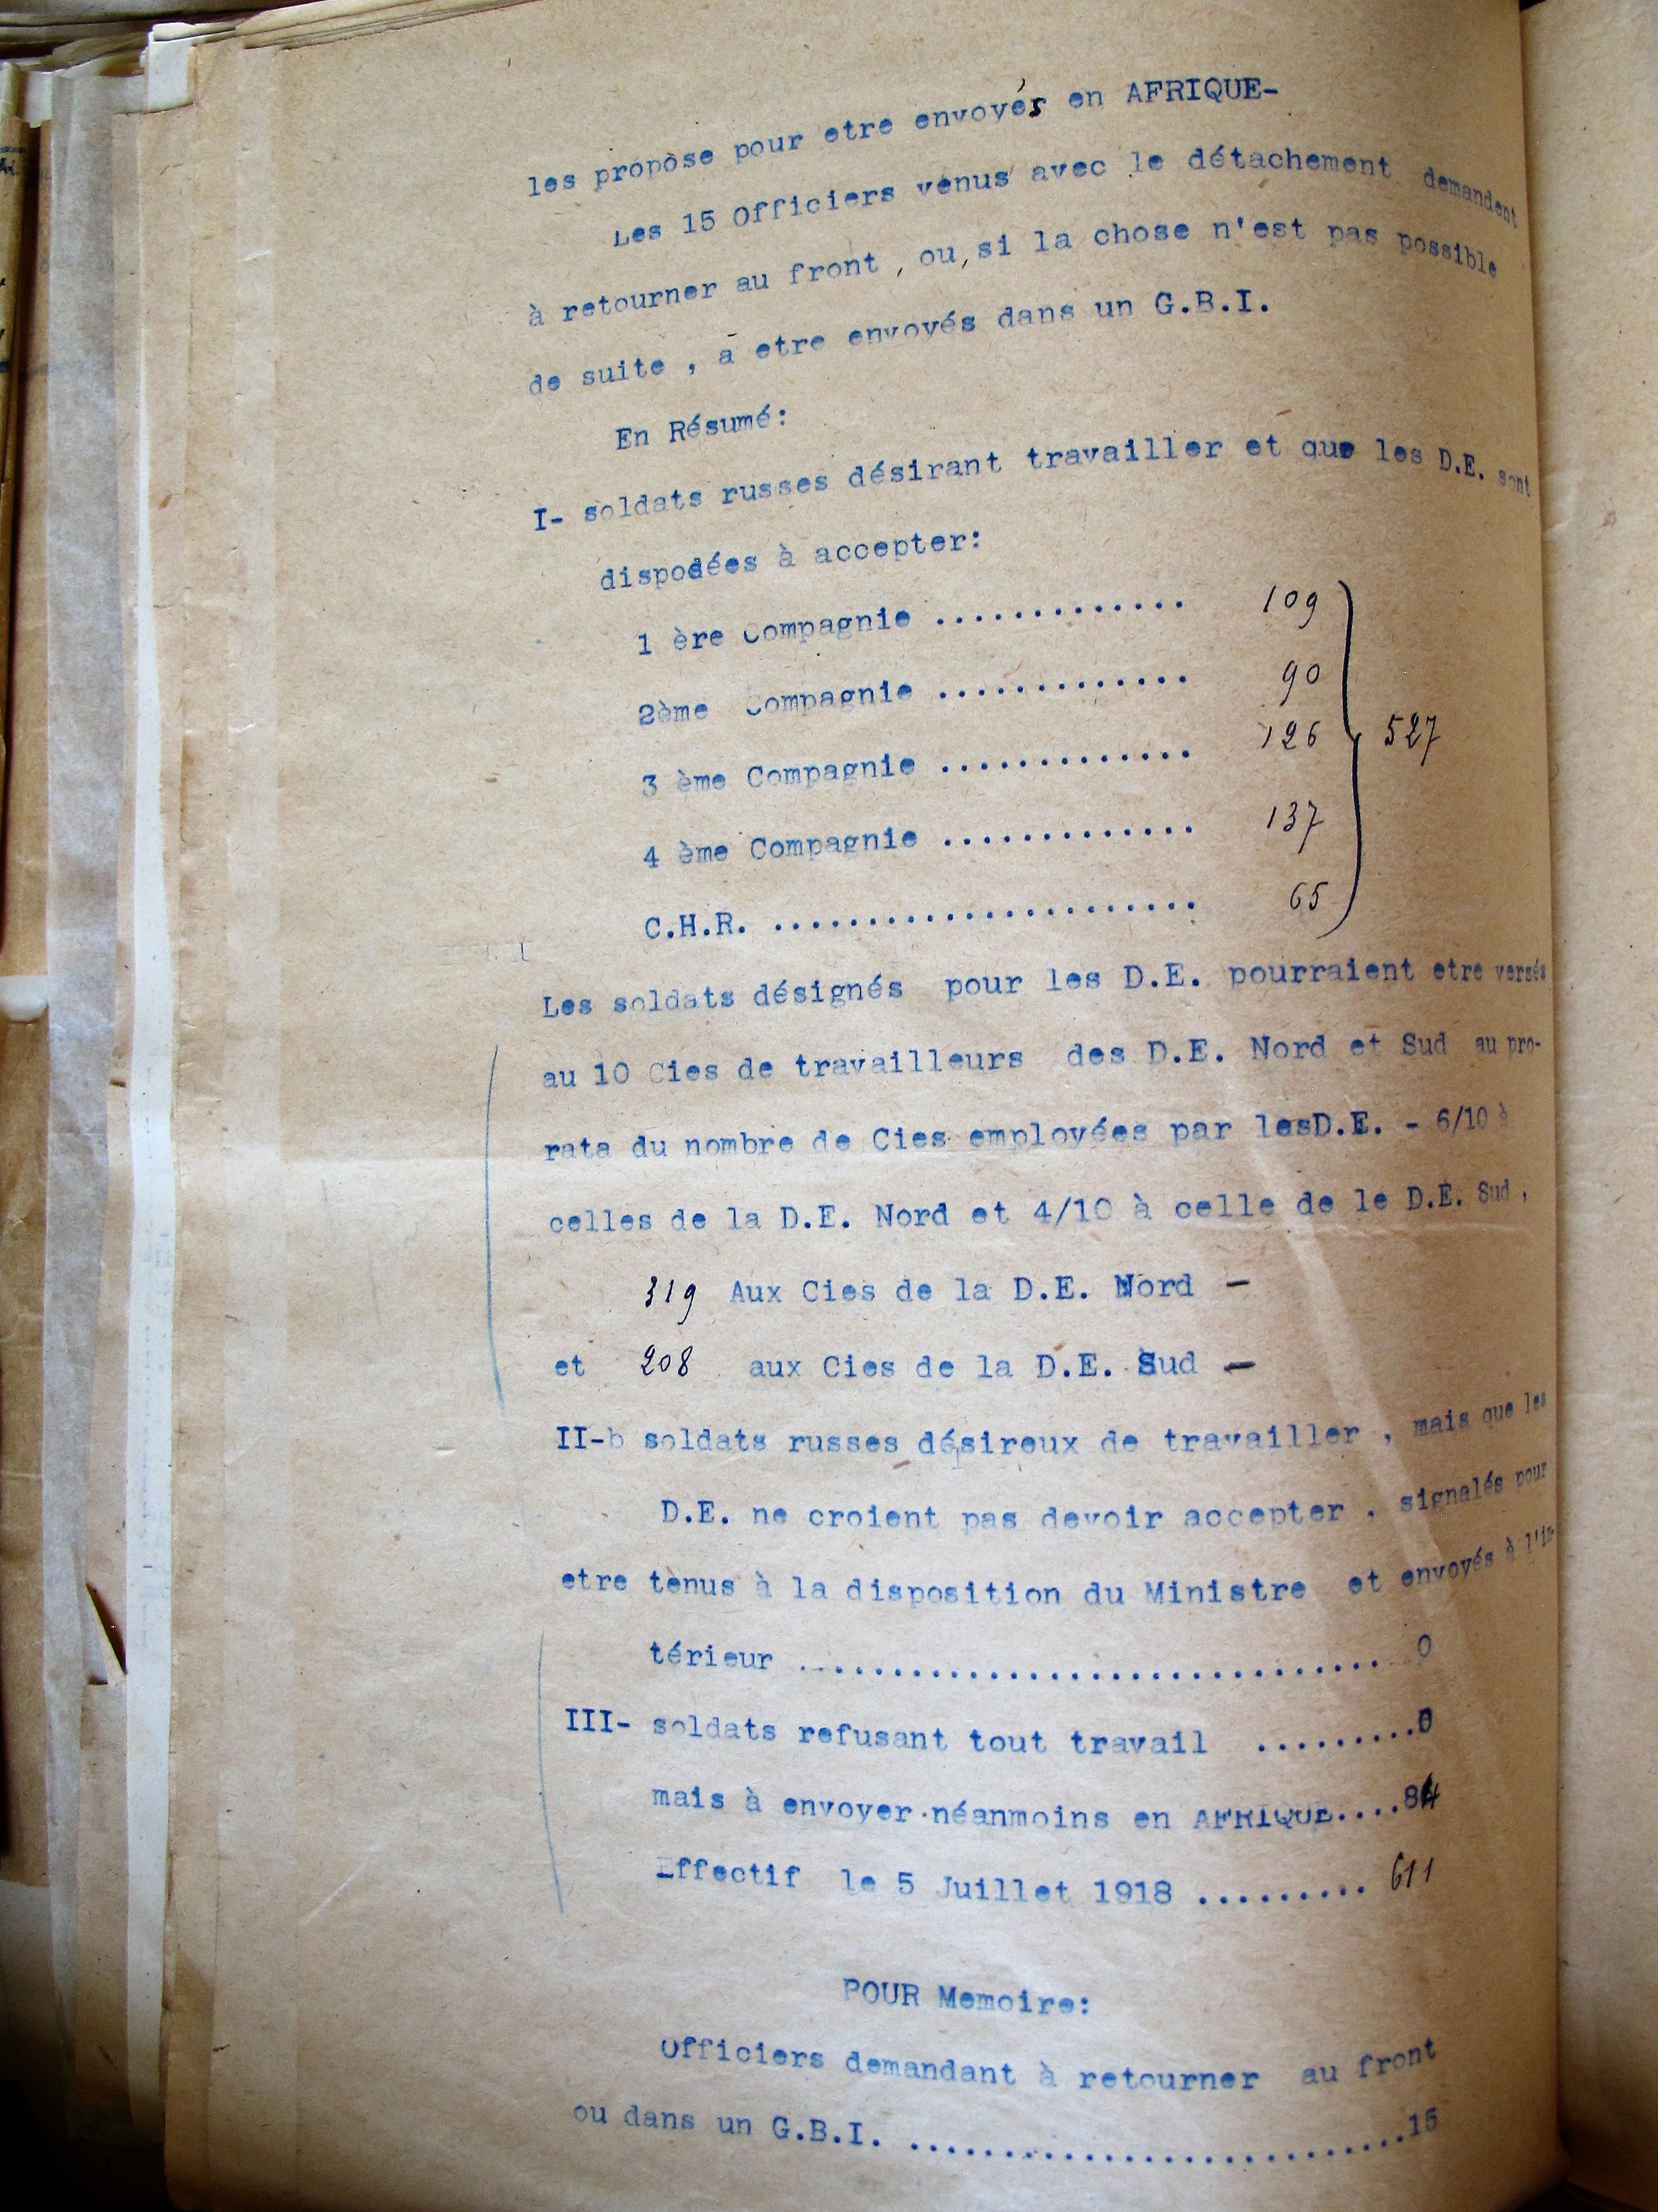 les propose pour etre envoyés en AFRIQUE-
Les 15 Officiers venus avec le détachement demandent
à retourner au front , ou, si la chose n'est pas possible
de suite , à etre envoyés dans un G.B.I.
En Résumé:
I- soldats russes désirant travailler et que les D.E. sont
disposées à accepter:
1 ère Compagnie ............. 109
2ème Compagnie ............. 90
3 ème Compagnie ............. 126 527
4 ème Compagnie ............. 137
C.H.R. ...................... 65
Les soldats désignés pour les D.E. pourraient etre versés
au 10 Cies de travailleurs des D.E. Nord et Sud au pro-
rata du nombre de Cies employées par lesD.E. - 6/10 à
celles de la D.E. Nord et 4/10 à celle de le D.E. Sud ,
319 Aux Cies de la D.E. Nord -
et 208 aux Cies de la D.E. Sud -
II-b soldats russes désireux de travailler , mais que les
D.E. ne croient pas devoir accepter , signalés pour
etre tenus à la disposition du Ministre et envoyés à l'in-
térieur .............................. 0
III- soldats refusant tout travail .........0
mais à envoyer néanmoins en AFRIQUE....84
Effectif le 5 Juillet 1918 ......... 611
POUR Memoire:
Officiers demandant à retourner au front
ou dans un G.B.I. ..........................15